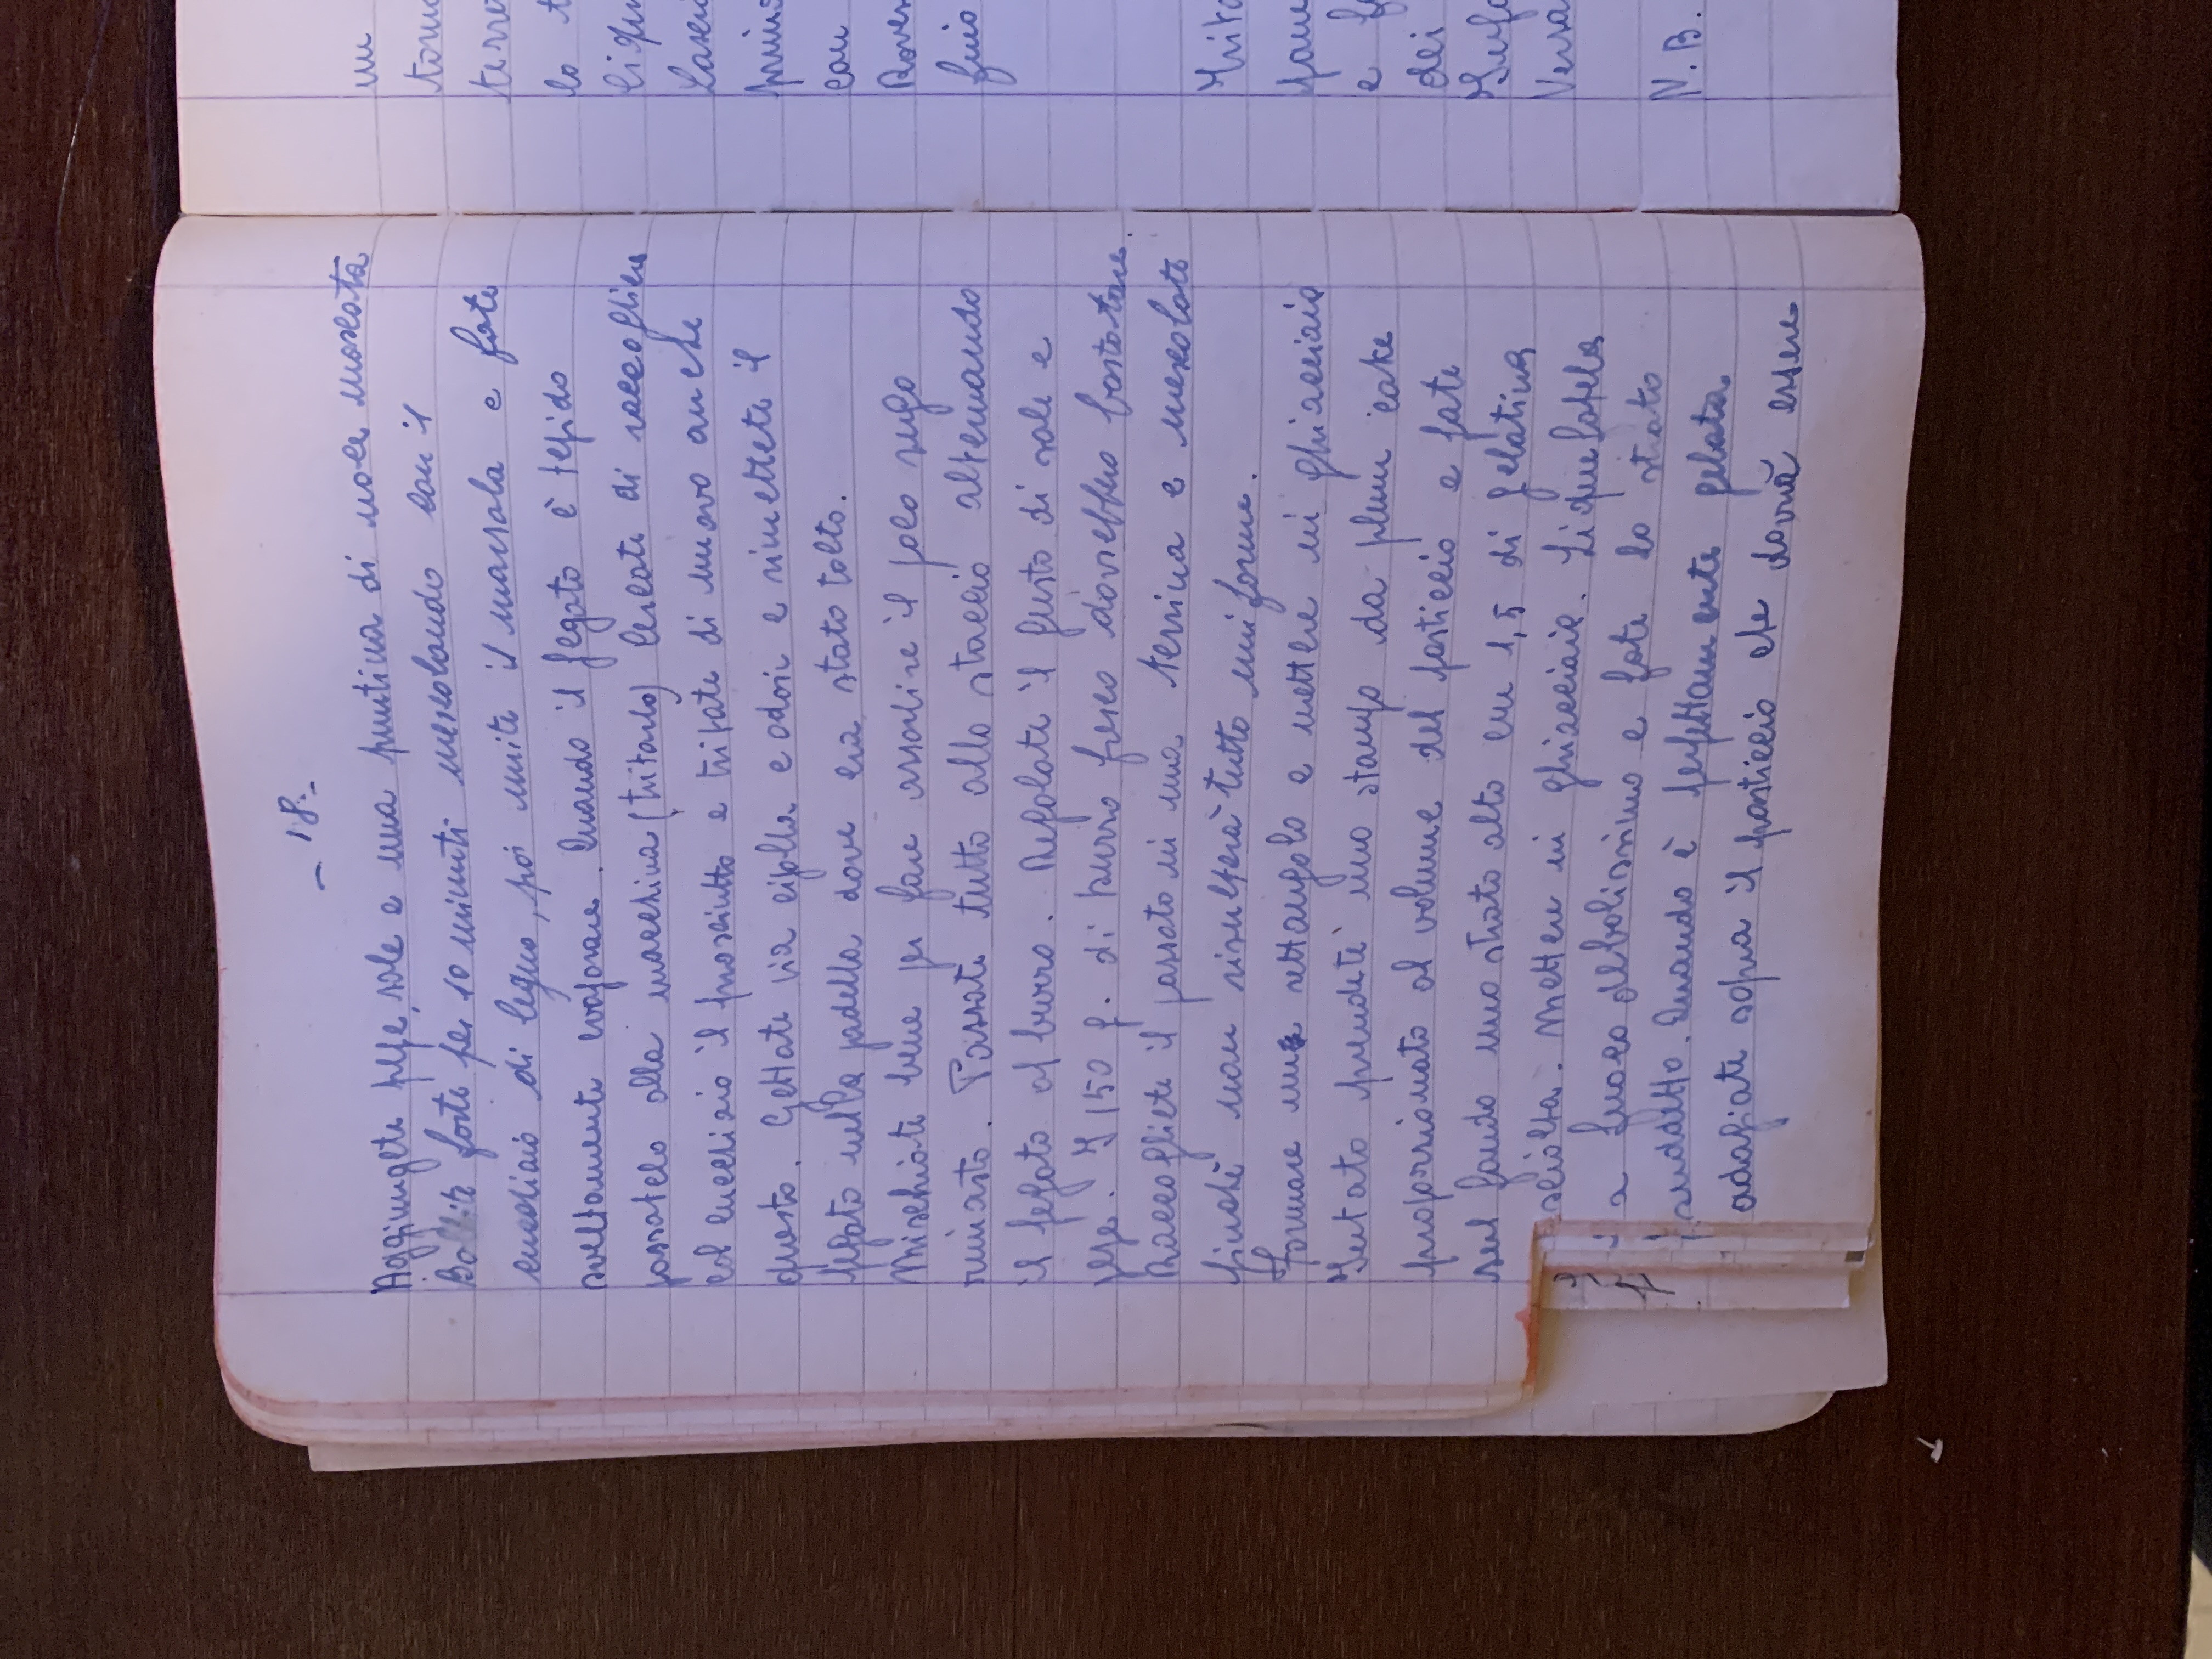 - 18 -
Aggiungete pepe, sale e una puntina di noce moscata
Bollite forte per 10 minuti mescolando con il
cucchiaio di legno, poi unite il marsala e fate
sveltamente evaporare. Quando il fegato è tepido
passatelo alla macchina (tritarlo) Cercate di raccogliere
col cucchiaio il prosciutto e tritate di nuovo anche
questo. Gettate via cipolla e odori e rimettete il
fegato nella padella dove era stato tolto.
Mischiate bene per fare assorbire il poco sugo
rimasto. Passate tutto allo staccio alternando
il fegato al burro. Regolate il gusto di sale e
pepe. I 150 g. di burro fresco dovrebbero bastotare.
Raccogliete il passato in una terrina e mescolate
finchè non risulterà tutto uniforme.
Formare un rettangolo e mettere in ghiacciaia
Intato prendete uno stampo da plum cake
proporzionato al volume del pasticcio e fate
sul fondo uno strato alto cm 1,5 di gelatina
sciolta. Mettere in ghiacciaia. Liquefatela
a fuoco debolissimo e fate lo strato
suddetto. Quando è perfettamente gelata
adagiate sopra il pasticcio che dovrà essere
un
lo
con
fino
e
dei
N.B.